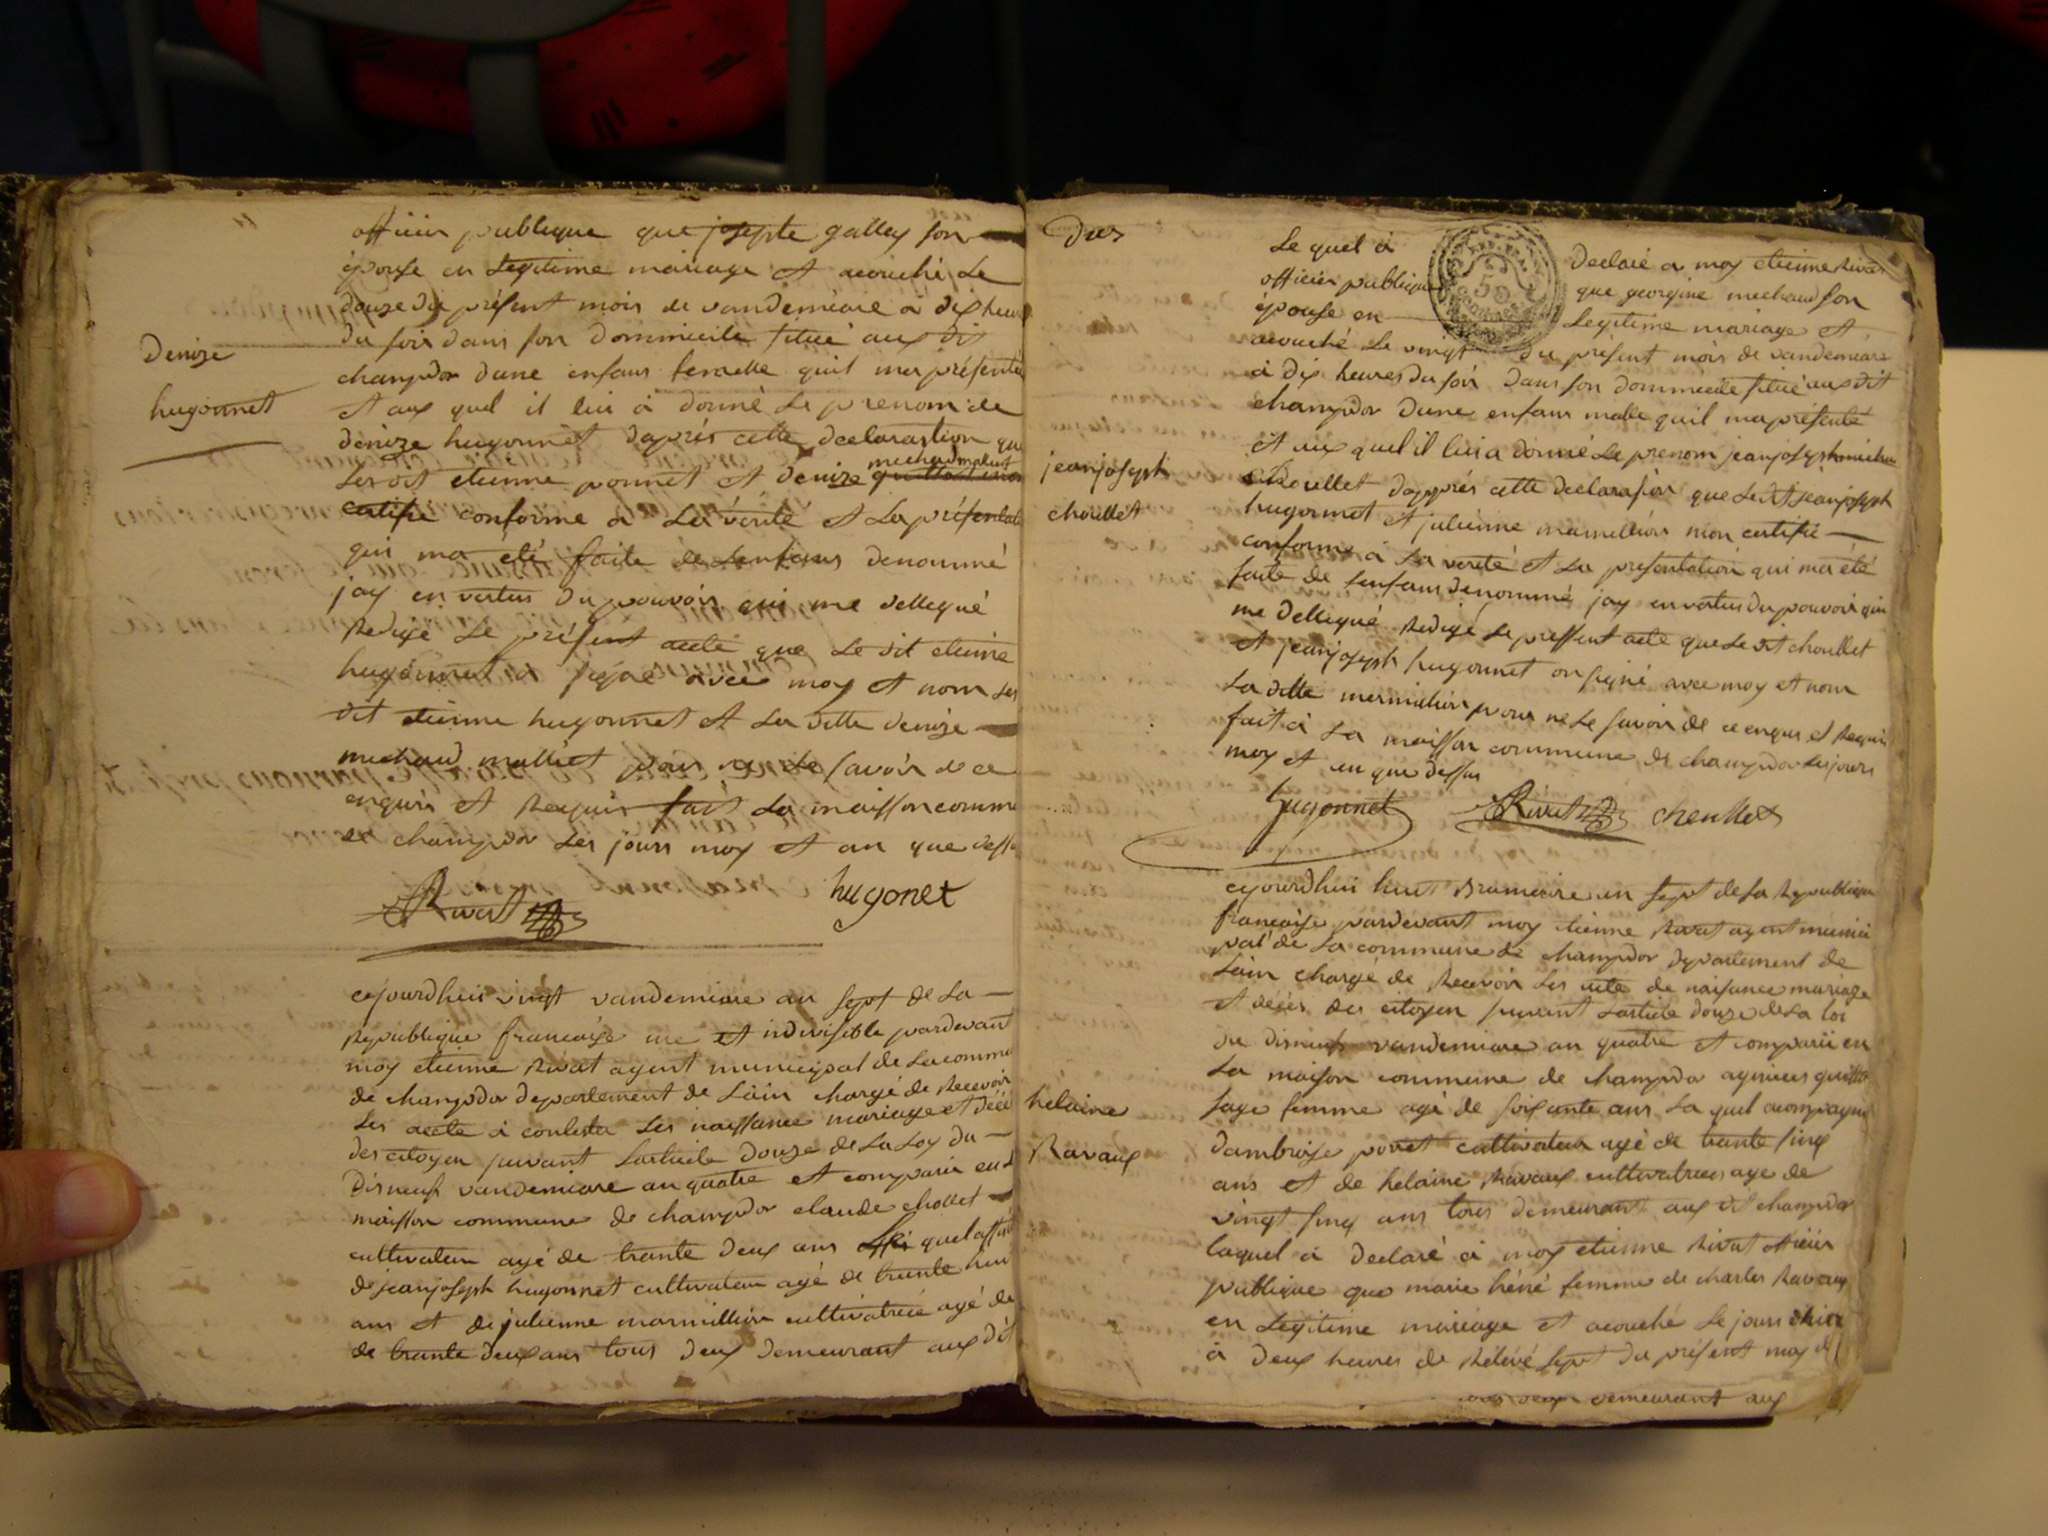 officier publique que josepte galley son
épouse en Legitime mariage et acouché Le
douze du présent mois de vandemiaire à dix heur
du soir dans son dommicile situé aux dit
champdor dune enfans femelle quil ma présenté
Denize
hugonnet
et aux quel il lui à donné Le prenom de
denize hugonnet daprès cette declarastion que
Les dit etienne ponnet et denize
mechaud maliet
certifié conforme à La vérité et La présentat
qui ma été faite de Lenfans denommé
jay en vertus du pouvoir qui me dellegué
Redigé Le présent acte que Le dit etienne
hugonnet a signé avec moy et nom Les
dit etienne hugonnet et La ditte denize
mechaud malliet pour ne Le savoir de ce
enquis et Requis fait La maisson comme
de champdor Les jours moy et an que dessu
Rivat
hugonet
cejourdhui vingt vandemiaire an sept de La
Republique francaise une et indivisible pardevant
moy etienne Rivat agent municipal de La comme
de champdor departement de Lain chargé de Recevoir
Les acte à conlesta Les naissance mariage et décé
des citoyen suivant Larticle douze de La Loy du
dixneuf vandemiare an quatre et comparu en L
maisson commune de champdor claude chollet
cultivateur agé de trante deux ans Le quel assis
de jeanjoseph hugonnet cultivateur agé de trante huit
ans et de julienne marmillion cultivatrice agé de
de trante deux ans tous deux demeurant aux dit
Dues
Le quel à declaré a moy etienne Rivat
officier publique que georgine mechaud son
épouse en Legitime mariage et
acouché Le vingt du présent mois de vandemiare
à dix heures du soir dans son dommicile situé aux dit
champdor dune enfans malle quil ma présenté
et aux quel il lui a donné Le prenom jeanjoseph
jeanjoseph
choullet
choullet dapprés cette declarasion que Le dit jeanjoseph
hugonnet et julienne marmillion mon certifié
conforme à La verité et La presentation qui ma été
faite de Lenfans denommé jay en vertus du pouvoir qui
me dellegué Redigé Le pressent acte que Le dit choullet
et jeanjoseph hugonnet on signé avec moy et nom
La ditte mermillion pour ne Le savoir de ce enquis et Requis
fait à La maisson commune de champdor Les jours
moy et en que dessus
hugonnet Rivat choullet
cejourdhui huit Brumaire en sept de La Republique
francaise pardevant moy etienne Rivat agent munici
pal de La commune de champdor departement de
Lain chargé de Recevoir Les acte de naisance mariage
et décés des citoyen suivant Larticle douze de La loi
du disneuf vandemiare an quatre et comparu en
La maison commune de champdor
helaine
Ravaux
sage femme agé de soisante ans La quel acompagné
dambroise ponet cultivateur agé de trante sinq
ans et de helaine Ravaux cultivatrices age de
vingt sinq ans tous demeurant aux dit champdor
laquel à declaré à moy etienne Rivat officier
publique que marie héné femme de charles Ravaux
en Legitime mariage et acouché Le jours dhier
à deux heures de Rélévé sept du présent moy d
demeurant aux